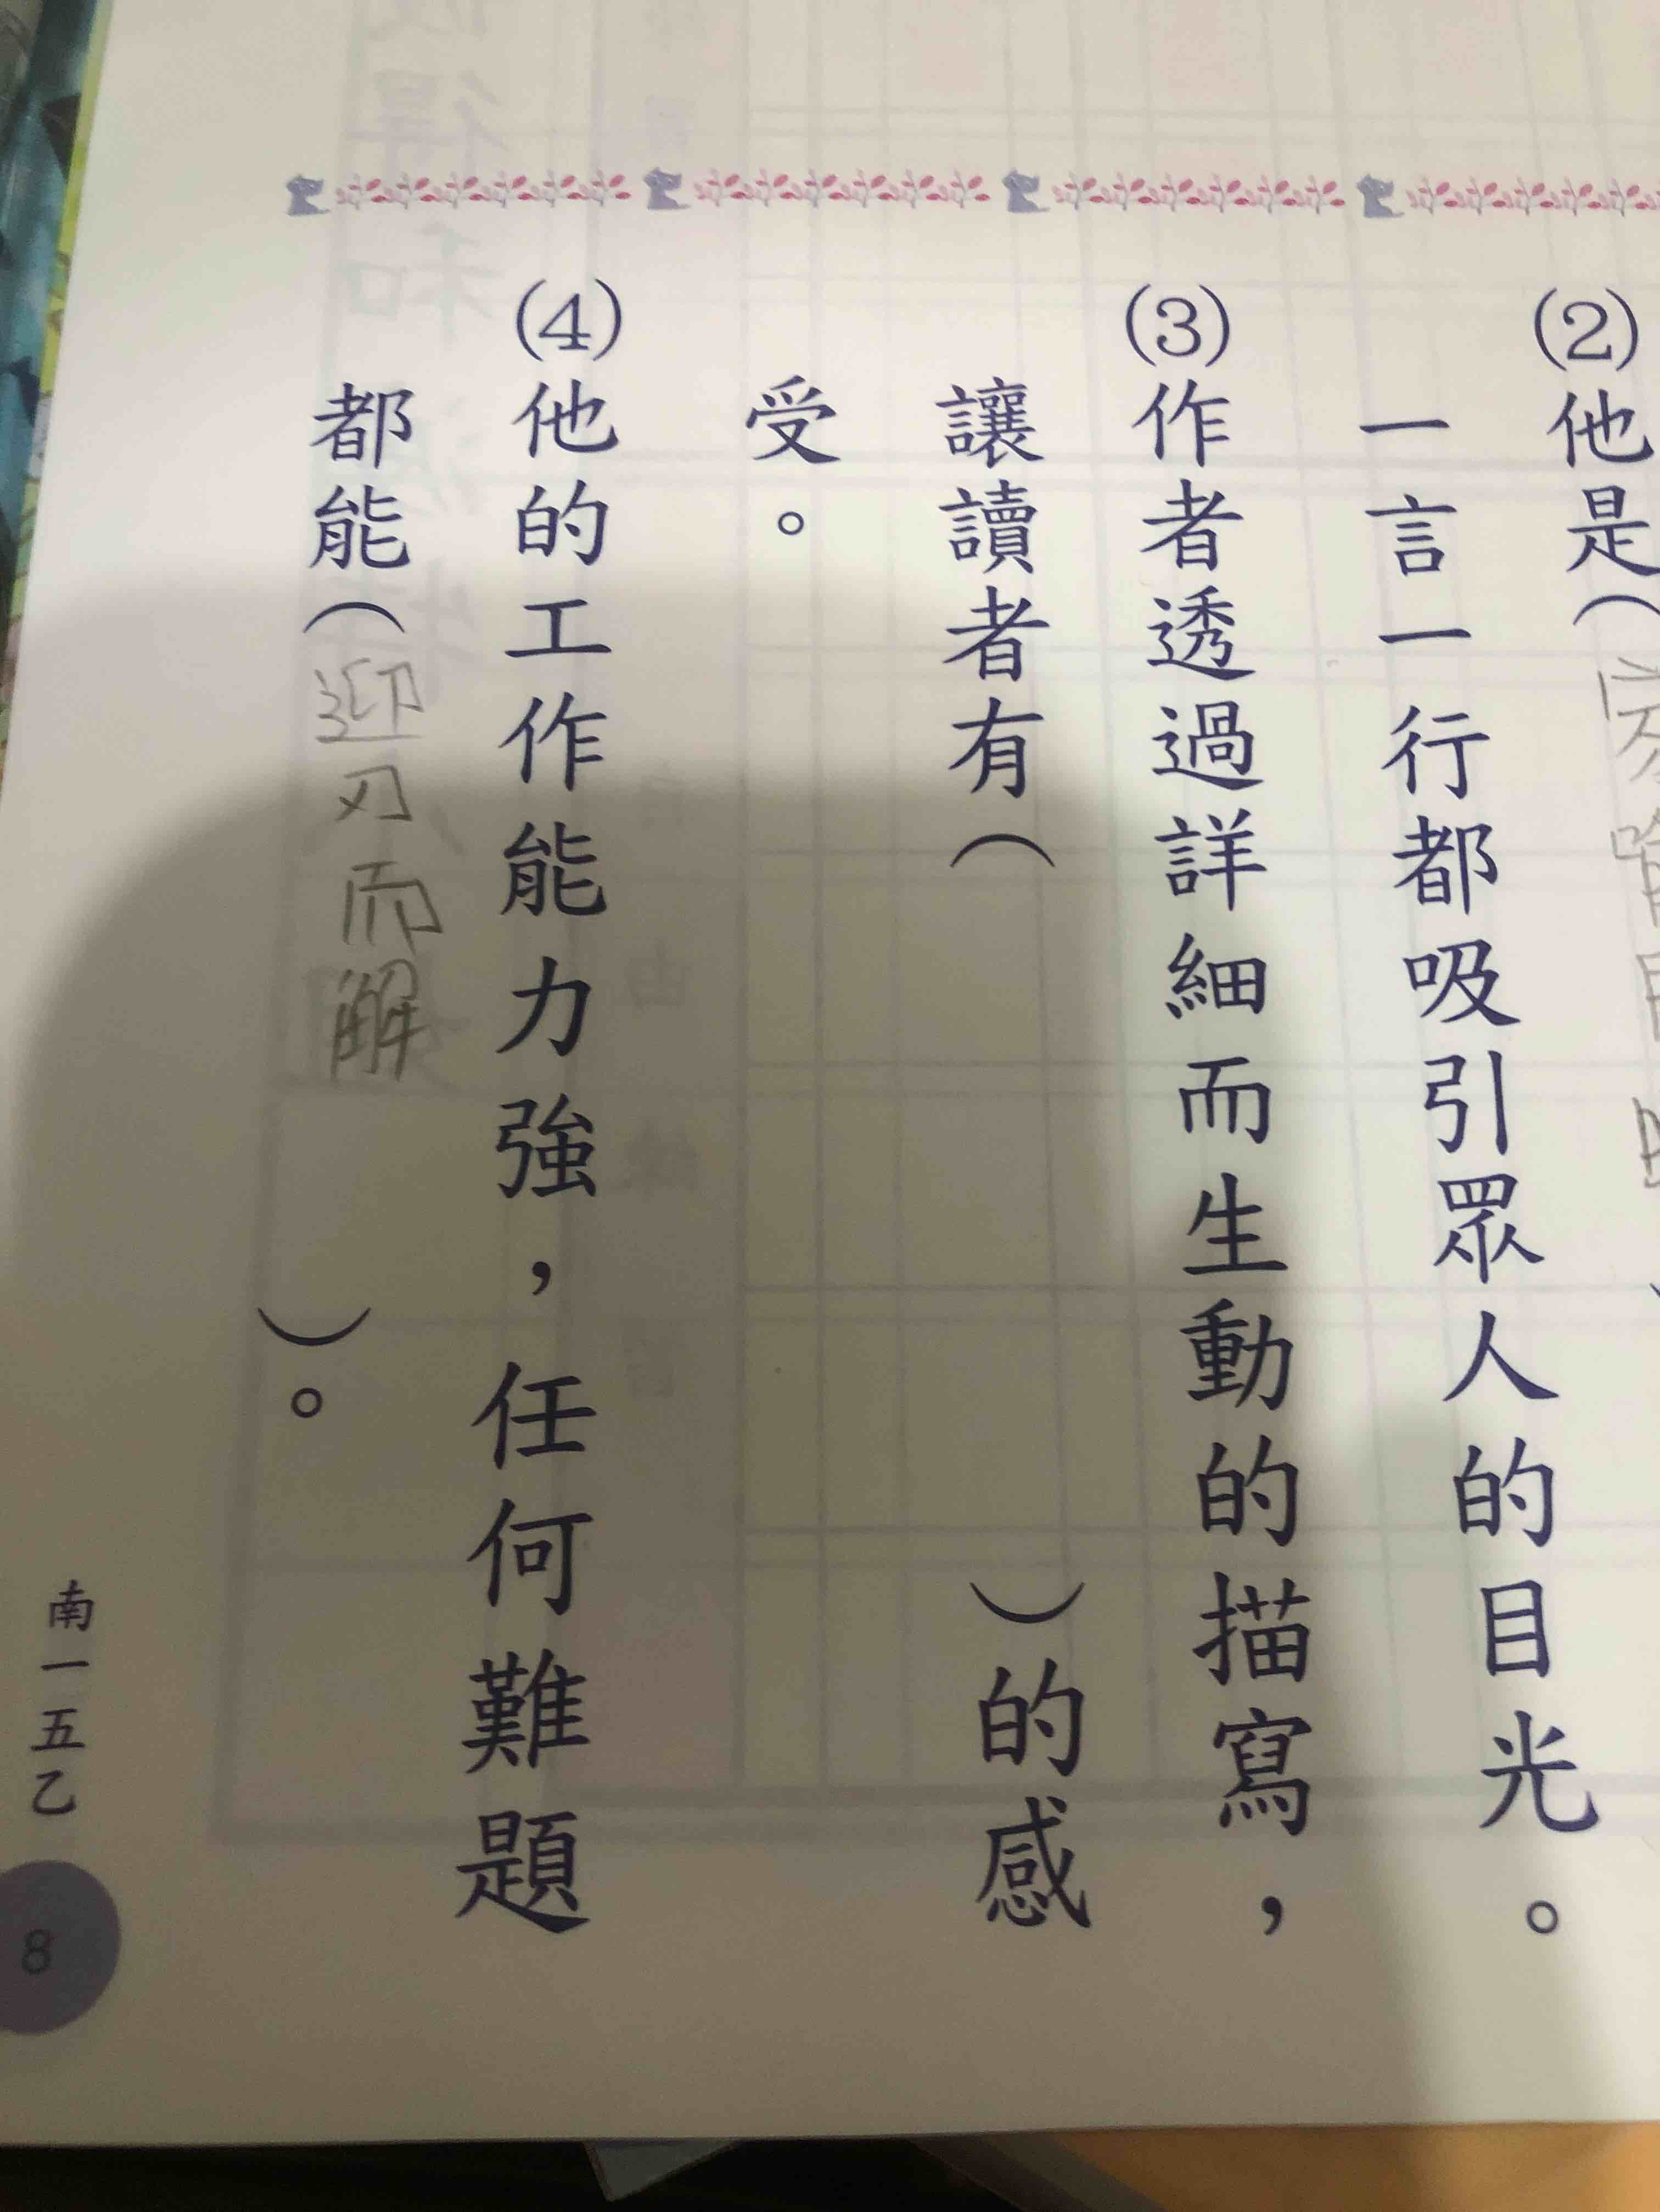 (2)他是(
一言一行都吸引眾人的目光。
(3)作者透過詳細而生動的描寫，
讓讀者有( )的感
受。
(4)他的工作能力強，任何難題
都能(迎刃而解)。
南一五乙
8